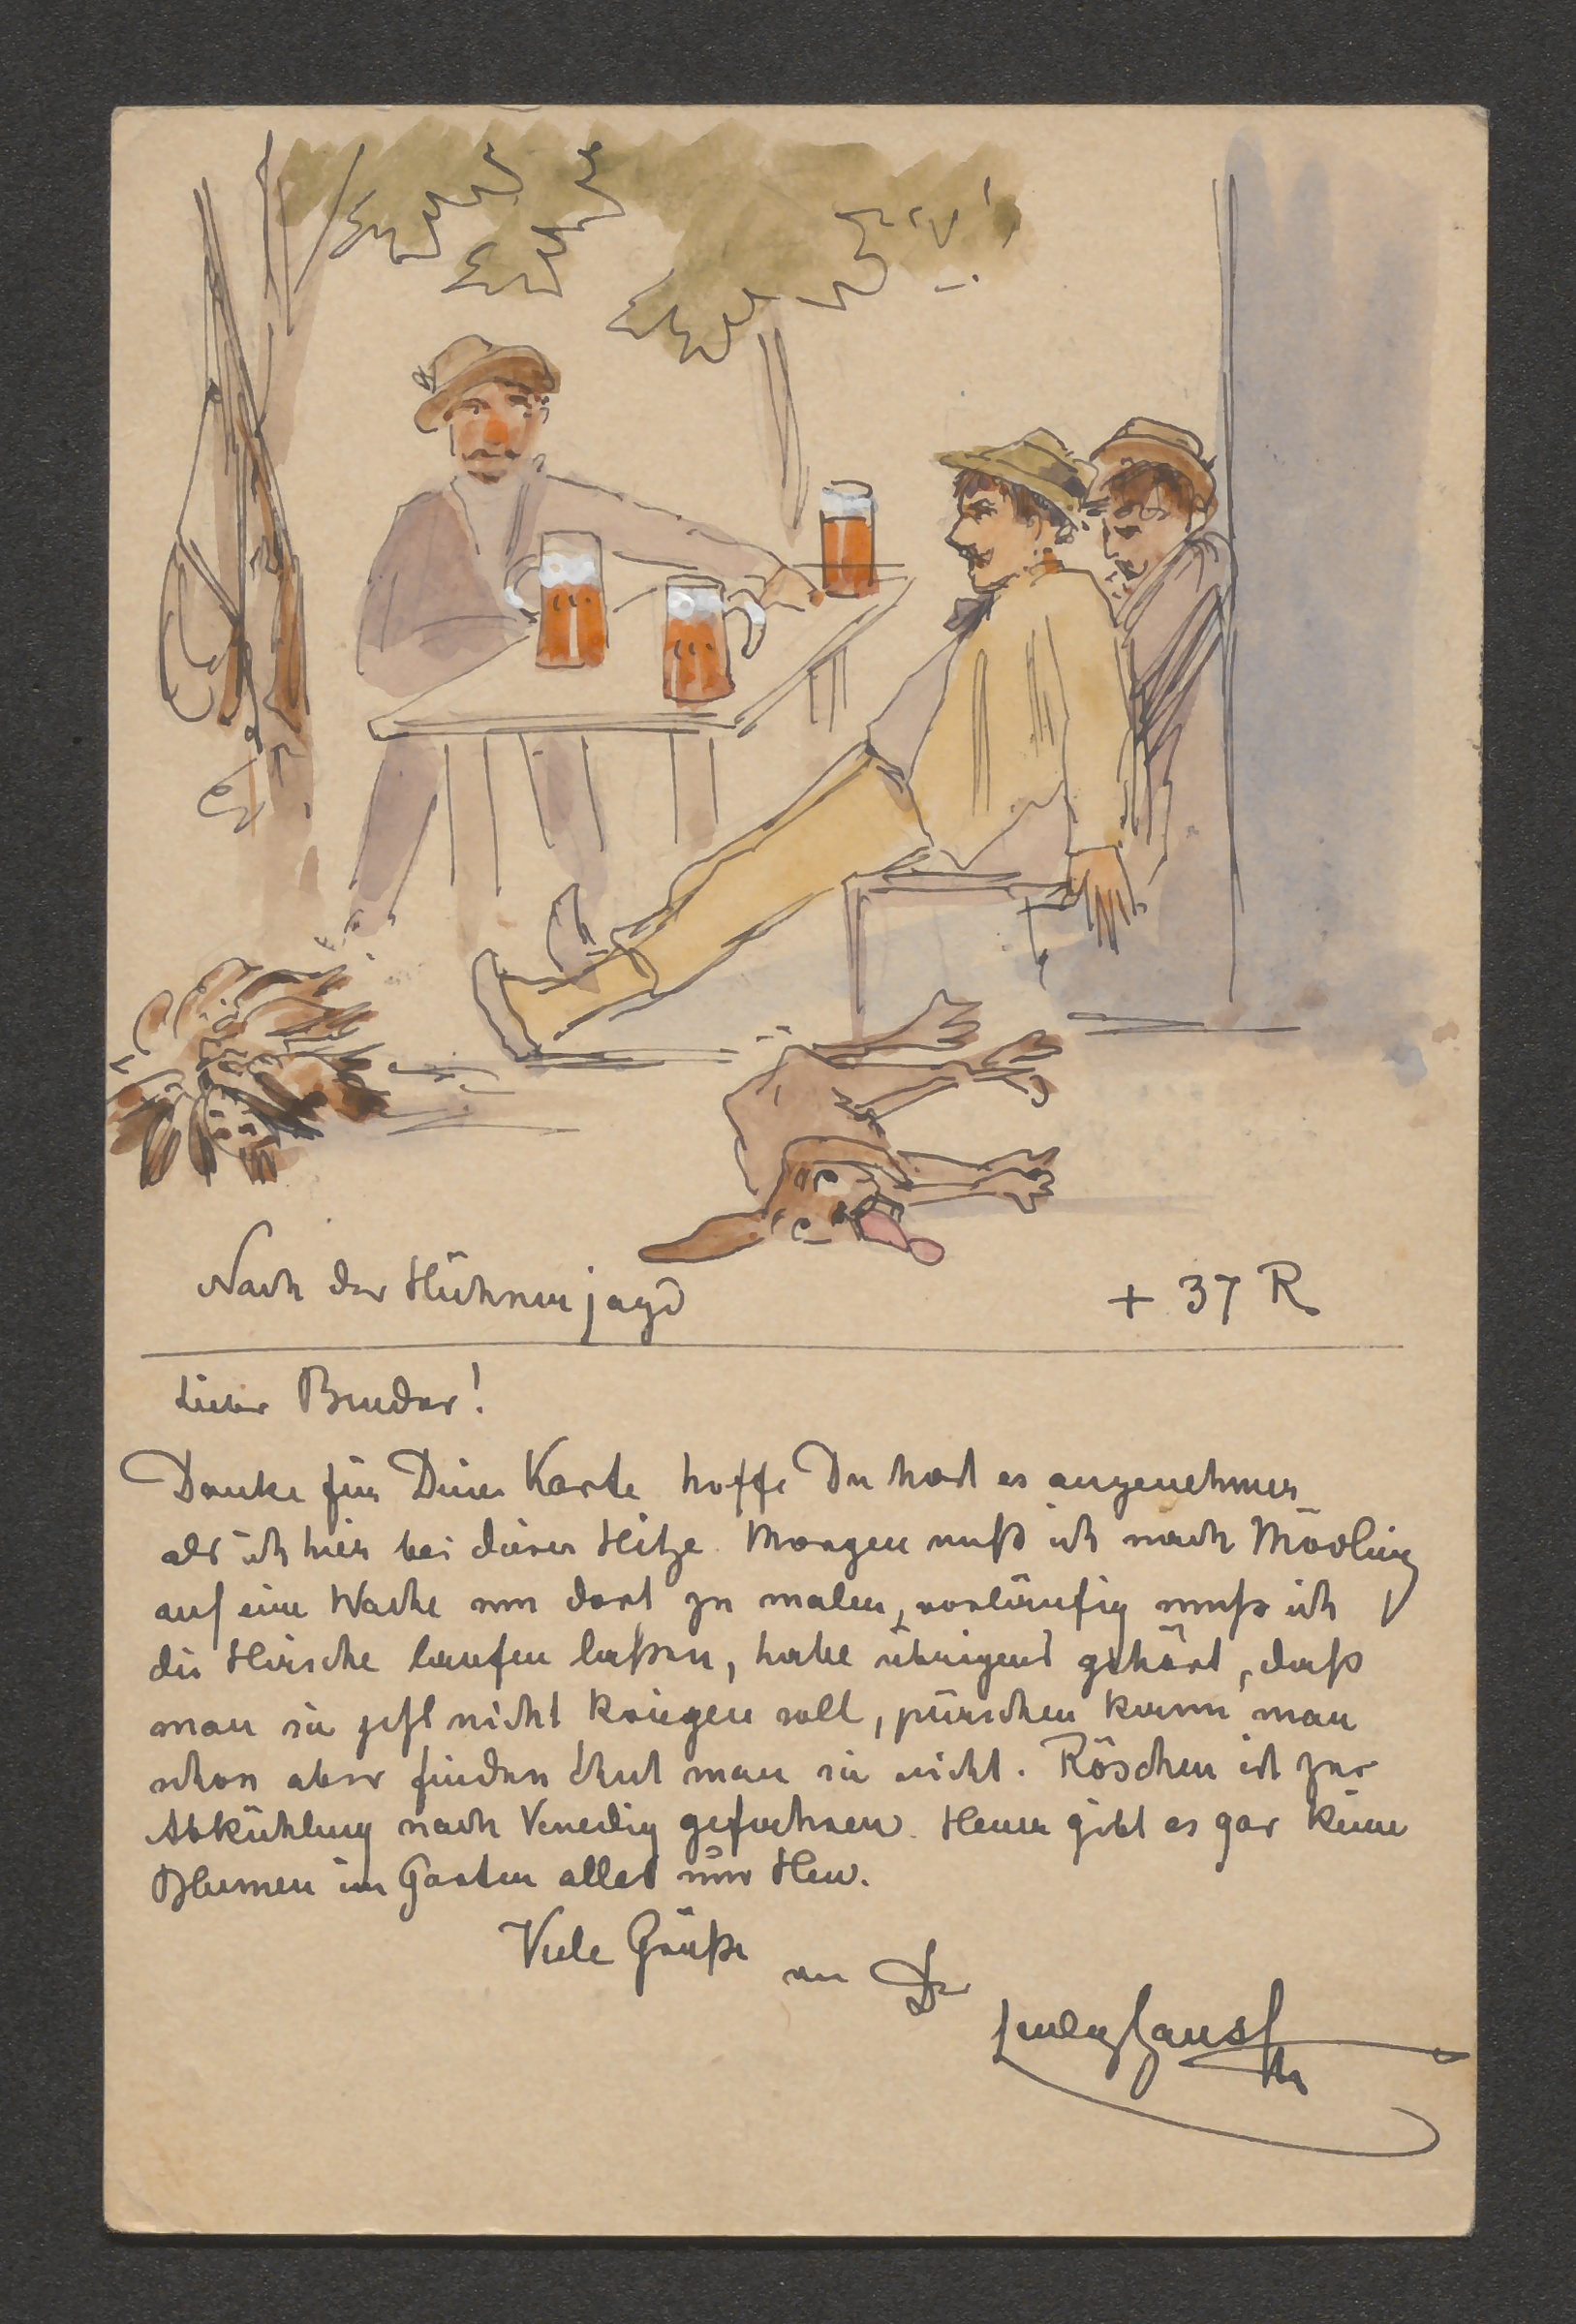 Nach der Hühnerjagd
+ 37 R
Lieber Bruder!
Danke für Deine Karte hoffe Du hast es angenehmer
als ich hier bei dieser Hitze. Morgen muß ich nach Mödling
auf eine Woche um dort zu malen, vorläufig muß ich
die Hirsche laufen laßen, habe übrigens gehört, daß
man sie jetzt nicht kriegen soll, pürschen kann man
schon aber finden thut man sie nicht. Röschen ist zur
Abkühlung nach Venedig gefahren. Heuer gibt es gar keine
Blumen im Garten alles nur Heu.
Viele Grüße